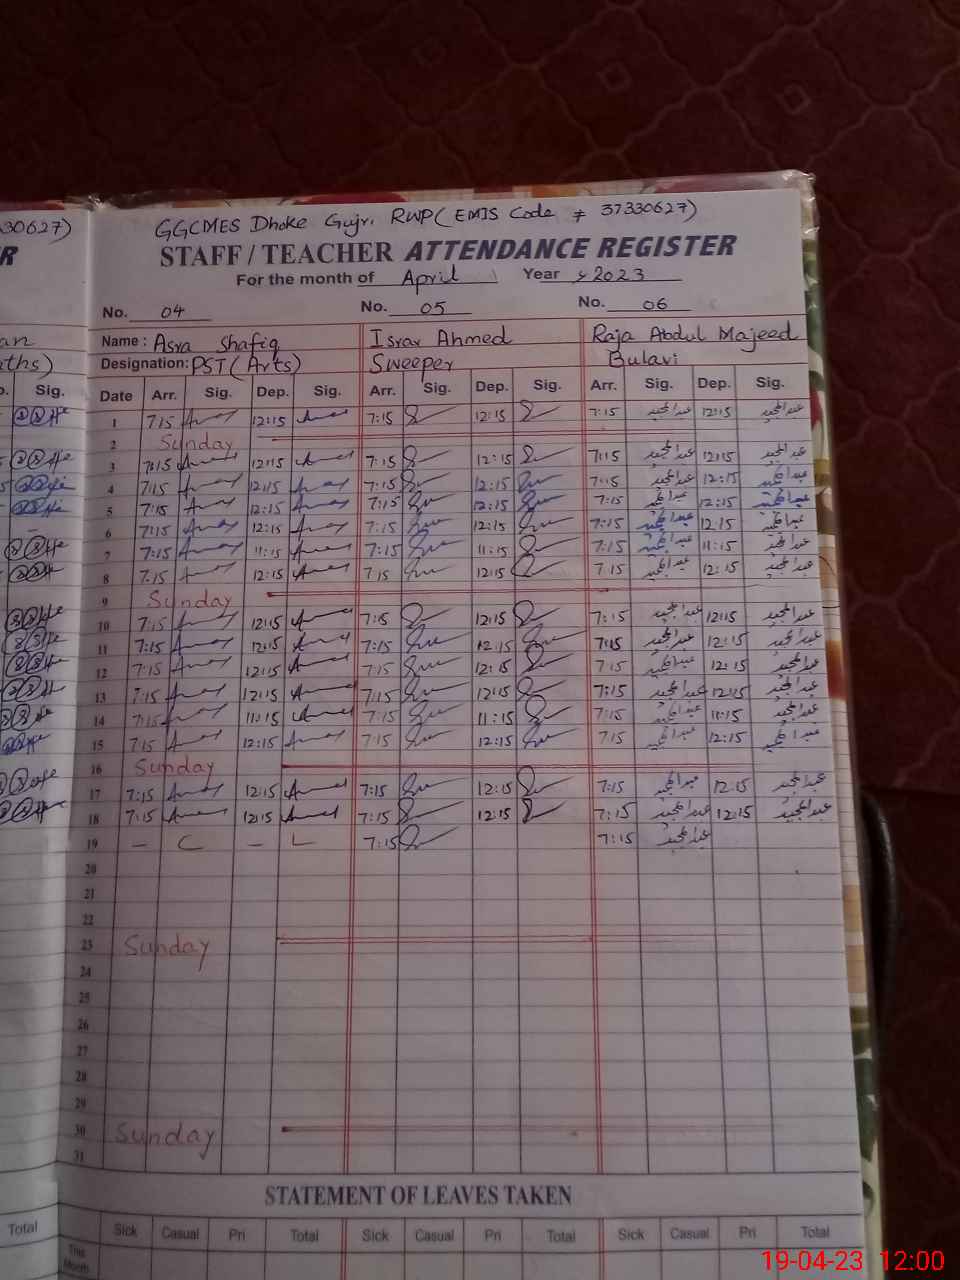 30627) GGCMES Dhoke Gujr, RWP (EMIS Code # 37330627)
R STAFF / TEACHER ATTENDANCE REGISTER
For the month of April Year 2023
No. 04 No. 05 No. 06
an Name: Asra Shafiq Israr Ahmed Raja Abdul Majeed
ths) Designation: PST (Arts) Sweeper Bulavi
Sig. Date Arr. Sig. Dep. Sig. Arr. Sig. Dep. Sig. Arr. Sig. Dep. Sig.
1 7:15 12:15 7:15 12:15 7:15 عبدالمجید 12:15 عبدالمجید
2 Sunday
3 7:15 12:15 7:15 12:15 7:15 عبدالمجید 12:15 عبدالمجید
4 7:15 12:15 7:15 12:15 7:15 عبدالمجید 12:15 عبدالمجید
5 7:15 12:15 7:15 12:15 7:15 عبدالمجید 12:15 عبدالمجید
6 7:15 12:15 7:15 12:15 7:15 عبدالمجید 12:15 عبدالمجید
7 7:15 11:15 7:15 11:15 7:15 عبدالمجید 11:15 عبدالمجید
8 7:15 12:15 7:15 12:15 7:15 عبدالمجید 12:15 عبدالمجید
9 Sunday
10 7:15 12:15 7:15 12:15 7:15 عبدالمجید 12:15 عبدالمجید
11 7:15 12:15 7:15 12:15 7:15 عبدالمجید 12:15 عبدالمجید
12 7:15 12:15 7:15 12:15 7:15 عبدالمجید 12:15 عبدالمجید
13 7:15 12:15 7:15 12:15 7:15 عبدالمجید 12:15 عبدالمجید
14 7:15 11:15 7:15 11:15 7:15 عبدالمجید 11:15 عبدالمجید
15 7:15 12:15 7:15 12:15 7:15 عبدالمجید 12:15 عبدالمجید
16 Sunday
17 7:15 12:15 7:15 12:15 7:15 عبدالمجید 12:15 عبدالمجید
18 7:15 12:15 7:15 12:15 7:15 عبدالمجید 12:15 عبدالمجید
19 – C – L 7:15 7:15 عبدالمجید
20
21
22
23 Sunday
24
25
26
27
28
29
30 Sunday
31
STATEMENT OF LEAVES TAKEN
Total Sick Casual Pri Total Sick Casual Pri Total Sick Casual Pri Total
This
Month
19-04-23 12:00